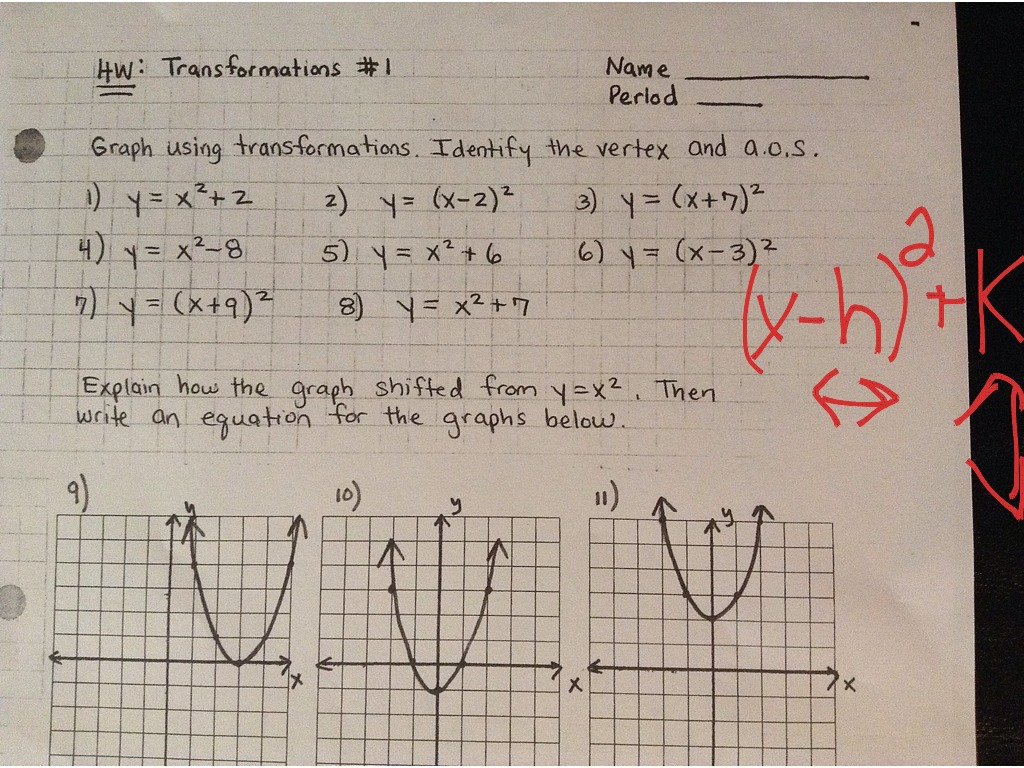 HW: Transformations #1 Name
Period
Graph using transformations. Identify the vertex and a.o.s.
1) y = x²+2 2) y = (x-2)² 3) y = (x+7)²
4) y = x²-8 5) y = x²+6 6) y = (x-3)²
7) y = (x+9)² 8) y = x²+7
(x-h)²+K
Explain how the graph shifted from y=x². Then
write an equation for the graphs below.
9) 10) 11)
y y y
x x x